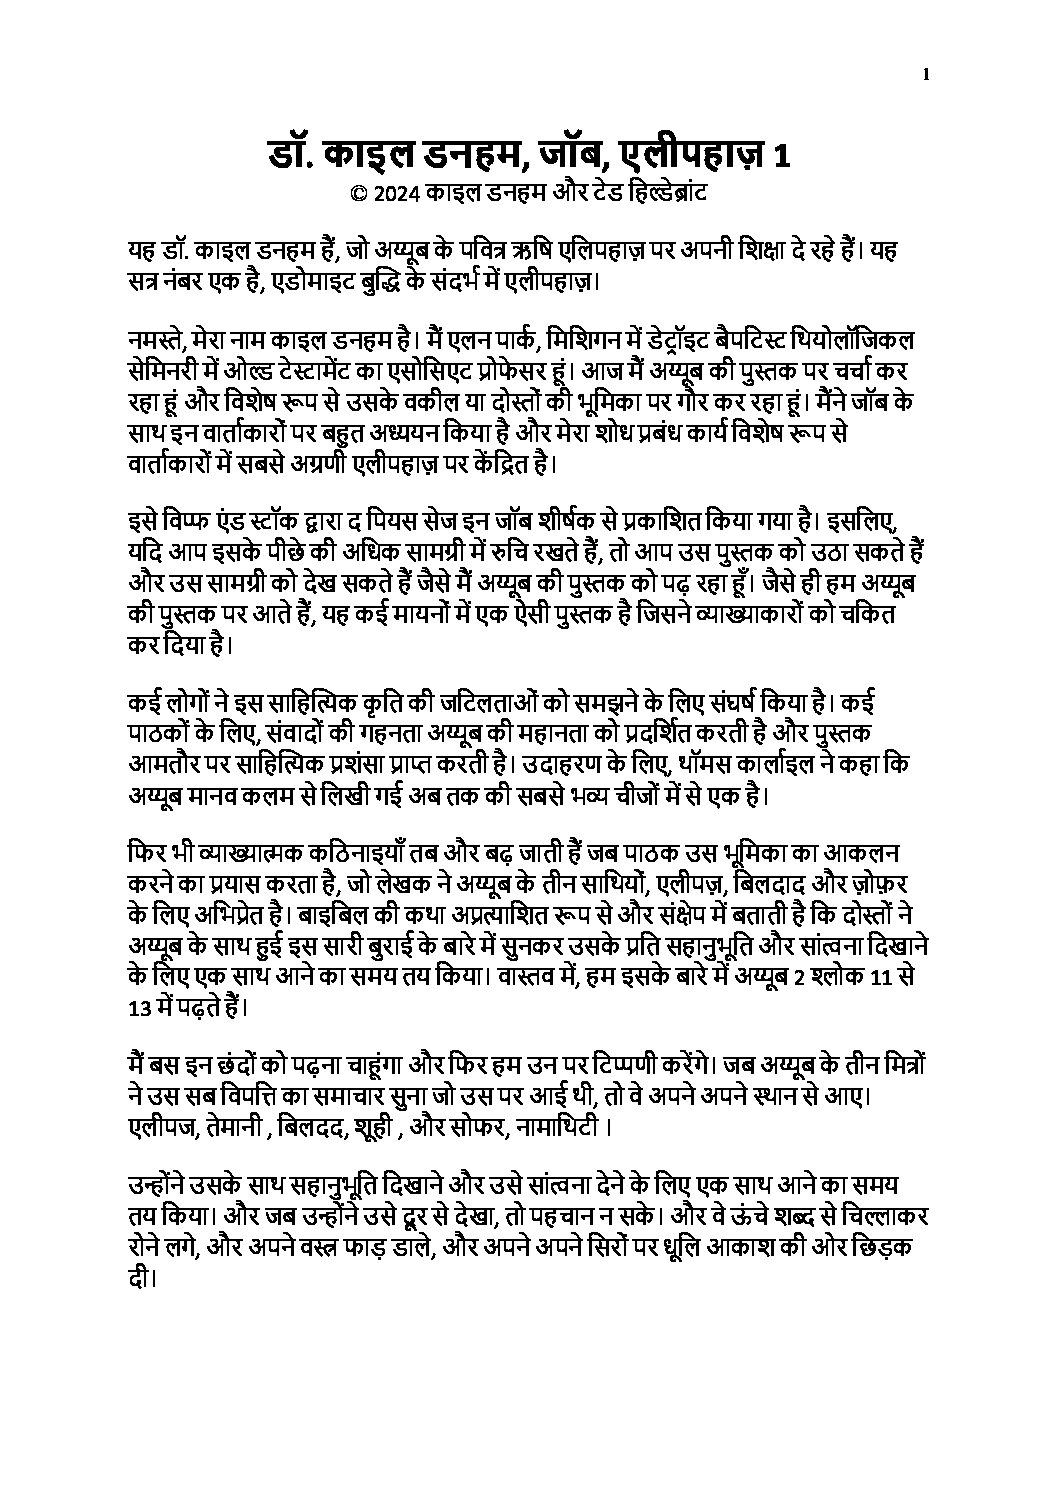 1
डॉ. काइल डनहम, जॉब, एलीपहाज़ 1
© 2024 काइल डनहम और टेड हिल्डेब्रांट
यह डॉ. काइल डनहम हैं, जो अय्यूब के पवित्र ऋषि एलिपहाज़ पर अपनी शिक्षा दे रहे हैं। यह
सत्र नंबर एक है, एडोमाइट बुद्धि के संदर्भ में एलीपहाज़।
नमस्ते, मेरा नाम काइल डनहम है। मैं एलन पार्क, मिशिगन में डेट्रॉइट बैपटिस्ट थियोलॉजिकल
सेमिनरी में ओल्ड टेस्टामेंट का एसोसिएट प्रोफेसर हूं। आज मैं अय्यूब की पुस्तक पर चर्चा कर
रहा हूं और विशेष रूप से उसके वकील या दोस्तों की भूमिका पर गौर कर रहा हूं। मैंने जॉब के
साथ इन वार्ताकारों पर बहुत अध्ययन किया है और मेरा शोध प्रबंध कार्य विशेष रूप से
वार्ताकारों में सबसे अग्रणी एलीपहाज़ पर केंद्रित है।
इसे विप्फ एंड स्टॉक द्वारा द पियस सेज इन जॉब शीर्षक से प्रकाशित किया गया है। इसलिए,
यदि आप इसके पीछे की अधिक सामग्री में रुचि रखते हैं, तो आप उस पुस्तक को उठा सकते हैं
और उस सामग्री को देख सकते हैं जैसे मैं अय्यूब की पुस्तक को पढ़ रहा हूँ। जैसे ही हम अय्यूब
की पुस्तक पर आते हैं, यह कई मायनों में एक ऐसी पुस्तक है जिसने व्याख्याकारों को चकित
कर दिया है।
कई लोगों ने इस साहित्यिक कृति की जटिलताओं को समझने के लिए संघर्ष किया है। कई
पाठकों के लिए, संवादों की गहनता अय्यूब की महानता को प्रदर्शित करती है और पुस्तक
आमतौर पर साहित्यिक प्रशंसा प्राप्त करती है। उदाहरण के लिए, थॉमस कार्लाइल ने कहा कि
अय्यूब मानव कलम से लिखी गई अब तक की सबसे भव्य चीजों में से एक है।
फिर भी व्याख्यात्मक कठिनाइयाँ तब और बढ़ जाती हैं जब पाठक उस भूमिका का आकलन
करने का प्रयास करता है, जो लेखक ने अय्यूब के तीन साथियों, एलीपज़, बिलदाद और ज़ोफ़र
के लिए अभिप्रेत है। बाइबिल की कथा अप्रत्याशित रूप से और संक्षेप में बताती है कि दोस्तों ने
अय्यूब के साथ हुई इस सारी बुराई के बारे में सुनकर उसके प्रति सहानुभूति और सांत्वना दिखाने
के लिए एक साथ आने का समय तय किया। वास्तव में, हम इसके बारे में अय्यूब 2 श्लोक 11 से
13 में पढ़ते हैं।
मैं बस इन छंदों को पढ़ना चाहूंगा और फिर हम उन पर टिप्पणी करेंगे। जब अय्यूब के तीन मित्रों
ने उस सब विपत्ति का समाचार सुना जो उस पर आई थी, तो वे अपने अपने स्थान से आए।
एलीपज, तेमानी , बिलदद, शूही , और सोफर, नामाथिटी ।
उन्होंने उसके साथ सहानुभूति दिखाने और उसे सांत्वना देने के लिए एक साथ आने का समय
तय किया। और जब उन्होंने उसे दूर से देखा, तो पहचान न सके। और वे ऊंचे शब्द से चिल्लाकर
रोने लगे, और अपने वस्त्र फाड़ डाले, और अपने अपने सिरों पर धूलि आकाश की ओर छिड़क
दी।